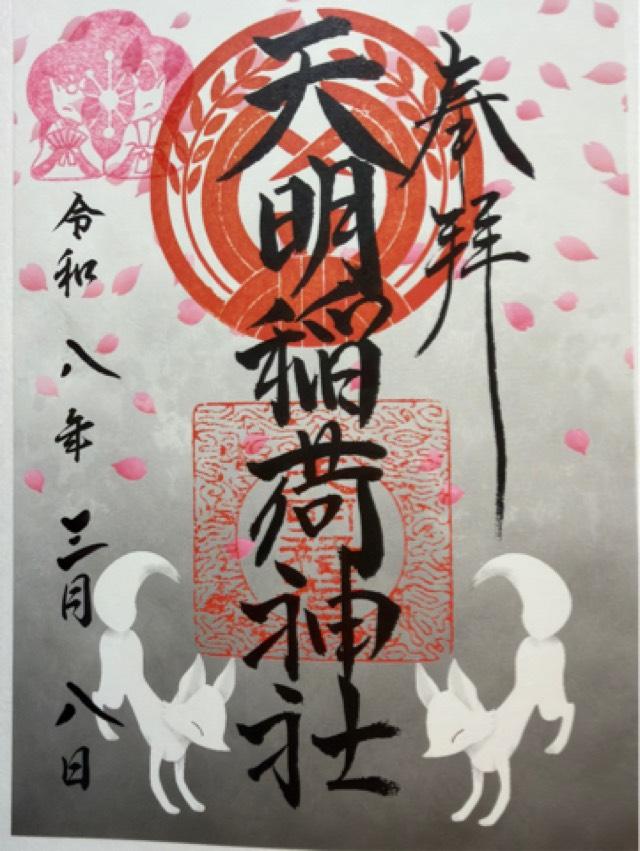 奉拝
天明稲荷神社
令和八年三月八日